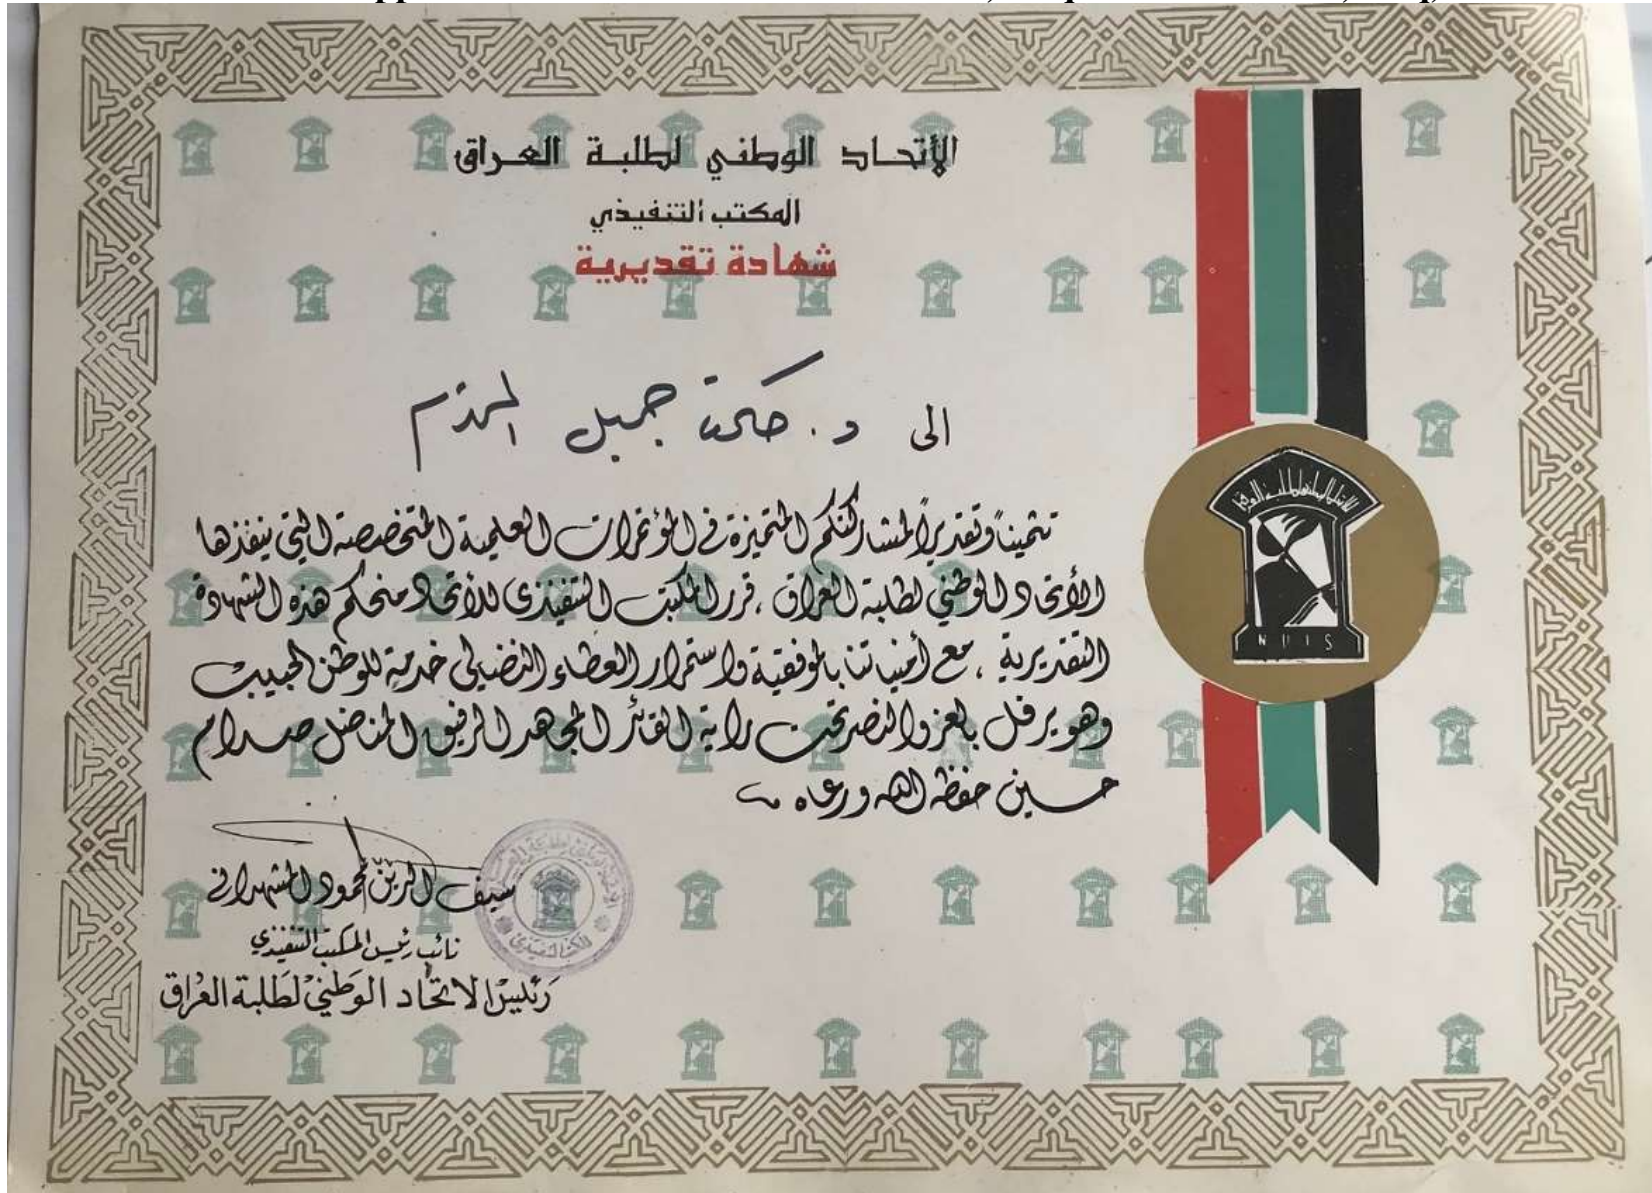 الأتحاد الوطني لطلبة العراق
المكتب التنفيذي
شهادة تقديرية
الى د. حكمت جميل المحترم
تثميناً وتقديراً لمشاركتكم المتميزة في المؤتمرات العلمية المتخصصة التي ينفذها
الأتحاد الوطني لطلبة العراق ، قرر المكتب التنفيذي للأتحاد منحكم هذه الشهادة
التقديرية ، مع أمنياتنا بالموفقية واستمرار العطاء النضالي خدمة للوطن الحبيب
وهو يرفل بالعز والنصر تحت راية القائد المجاهد الرفيق المناضل صدام
حسين حفظه الله ورعاه
سيف الدين محمود المشهداني
نائب رئيس المكتب التنفيذي
رئيس الاتحاد الوطني لطلبة العراق
الاتحاد الوطني لطلبة العراق
NUIS
المكتب التنفيذي